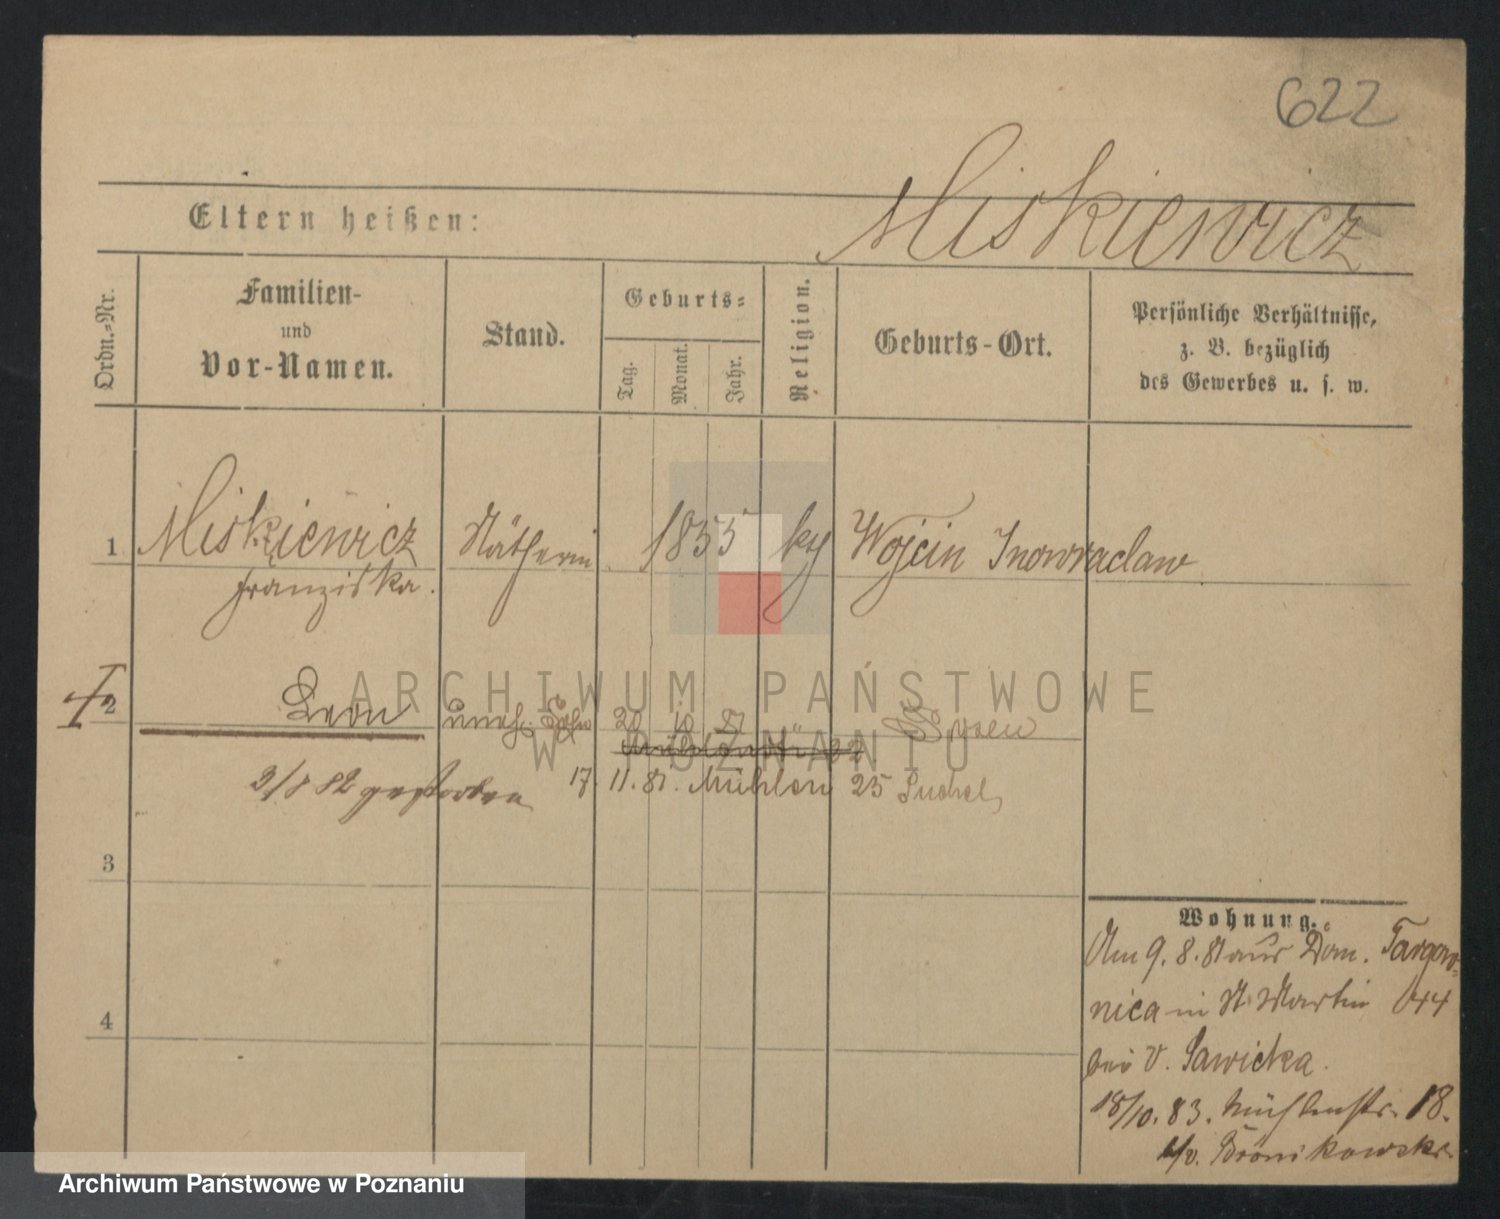 622
Miskiewicz
Eltern heißen:
Ordn.-Nr.
Familien-
und
Vor-Namen.
Stand.
Geburts-
Tag.
Monat.
Jahr.
Religion.
Geburts-Ort.
Persönliche Verhältnisse,
z. B. bezüglich
des Gewerbes u. s. w.
1 Miskiewicz Nätherin 1855 kg Wojcin Inowraclaw
Franziska.
2 Leon uneh. Sohn 20 10 81 Posen
3/8 82 gestorben 17. 11. 81. Mühlen 25 Suchel
3
4
Wohnung.
Am 9. 8. 81 aus Dom. Targow-
nica in St Martin 44
bei v. Sawicka.
18/10. 83. Mühlenstr. 18.
b/v. Bronikowska
ARCHIWUM PAŃSTWOWE
W POZNANIU
Archiwum Państwowe w Poznaniu